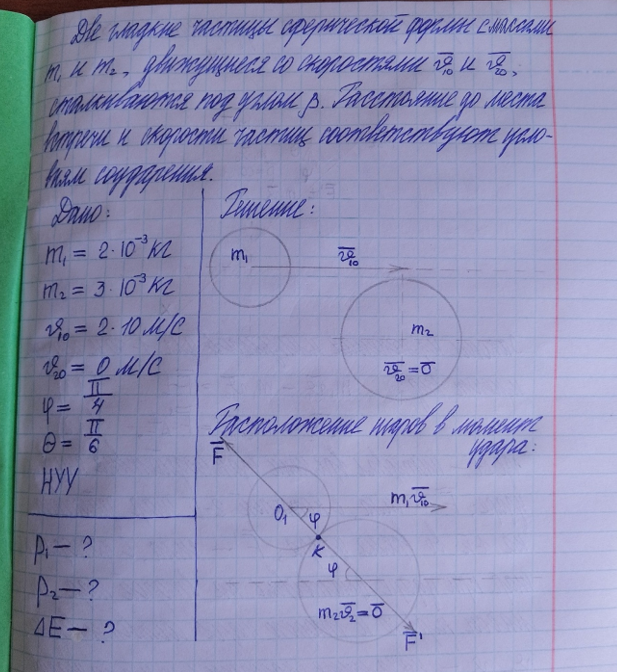 Две гладкие частицы сферической формы с массами
m₁ и m₂, движущиеся со скоростями v̅₁₀ и v̅₂₀,
сталкиваются под углом β. Расстояние до места
встречи и скорости частиц соответствуют усло-
виям соударения.
Дано:
m₁ = 2·10⁻³ кг
m₂ = 3·10⁻³ кг
v₁₀ = 2·10 м/с
v₂₀ = 0 м/с
φ = π/4
θ = π/6
НУУ
p₁ — ?
p₂ — ?
ΔE — ?
Решение:
m₁ v̅₁₀
m₂
v̅₂₀ = 0̅
Расположение шаров в момент
удара:
F̅
m₁v̅₁₀
O₁ φ
K
φ
m₂v̅₂ = 0̅
F̅'